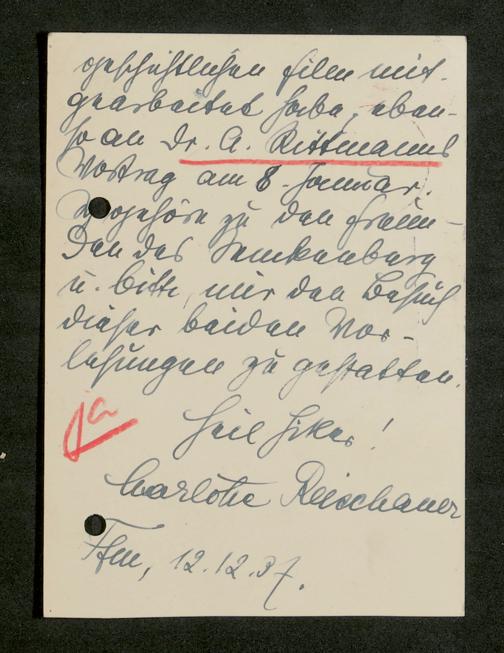 geschichtlichen Film mit-
gearbeitet habe, eben-
so an Dr. A. Rittmanns
Vortrag am 8. Januar.
Ich gehöre zu den Freun-
den des Senckenberg
u. bitte, mir den Besuch
dieser beiden Vor-
lesungen zu gestatten.
ja
Heil Hitler!
Charlotte Reischauer
Ffm, 12.12.37.